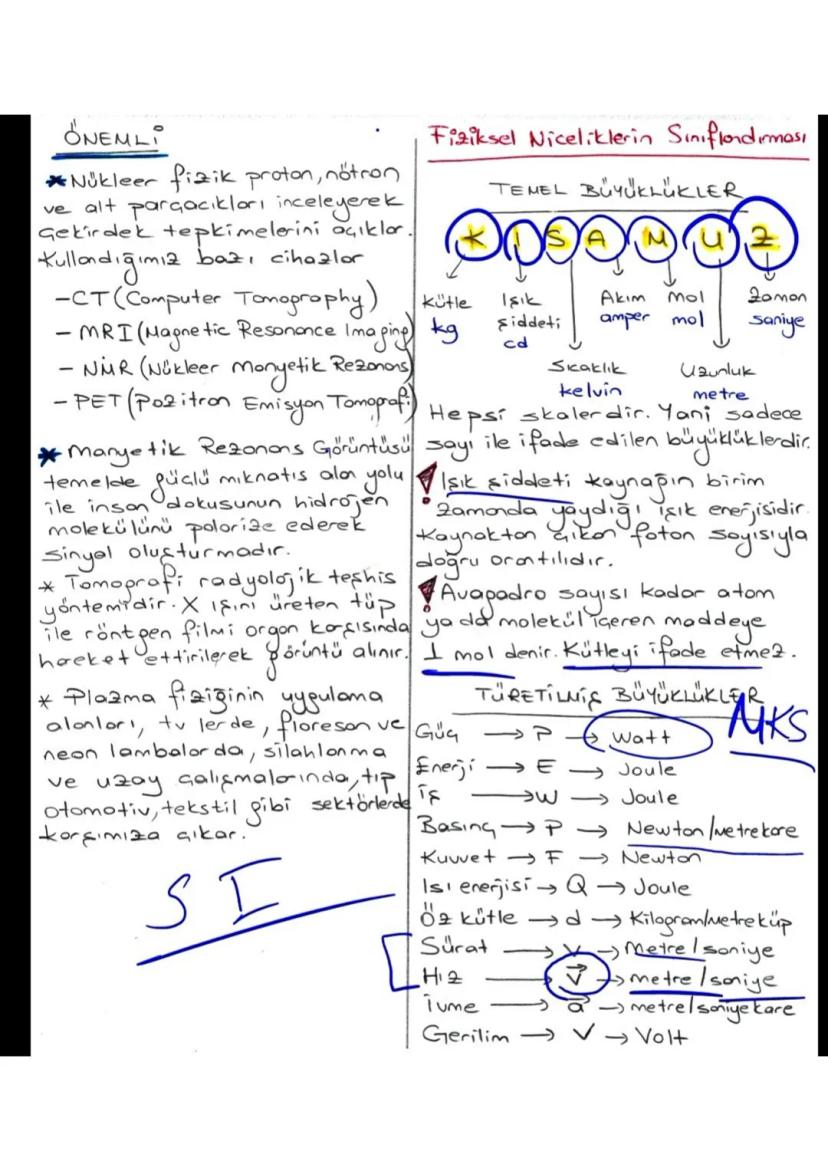 ÖNEMLİ
* Nükleer fizik proton, nötron
ve alt parçacıkları inceleyerek
çekirdek tepkimelerini açıklar.
Kullandığımız bazı cihazlar
- CT (Computer Tomography)
- MRI (Magnetic Resonance Imaging)
- NMR (Nükleer Manyetik Rezonans)
- PET (Pozitron Emisyon Tomografi)
* Manyetik Rezonans Görüntüsü
temelde güçlü mıknatıs alan yolu
ile insan dokusunun hidrojen
molekülünü polarize ederek
sinyal oluşturmadır.
* Tomografi radyolojik teşhis
yöntemidir. X ışını üreten tüp
ile röntgen filmi organ karşısında
hareket ettirilerek görüntü alınır.
* Plazma fiziğinin uygulama
alanları, tv lerde, floresan ve
neon lambalarda, silahlanma
ve uzay çalışmalarında, tıp
otomotiv, tekstil gibi sektörlerde
karşımıza çıkar.
SI
Fiziksel Niceliklerin Sınıflandırması
TEMEL BÜYÜKLÜKLER
K I S A M U Z
Kütle Işık Akım Mol Zaman
kg şiddeti amper mol saniye
cd
Sıcaklık Uzunluk
kelvin metre
Hepsi skalerdir. Yani sadece
sayı ile ifade edilen büyüklüklerdir.
! Işık şiddeti kaynağın birim
zamanda yaydığı ışık enerjisidir.
Kaynaktan çıkan foton sayısıyla
doğru orantılıdır.
! Avagadro sayısı kadar atom
ya da molekül içeren maddeye
1 mol denir. Kütleyi ifade etmez.
TÜRETİLMİŞ BÜYÜKLÜKLER
MKS
Güç → P → Watt
Enerji → E → Joule
İş → W → Joule
Basınç → P → Newton/metrekare
Kuvvet → F → Newton
Isı enerjisi → Q → Joule
Öz kütle → d → Kilogram/metreküp
Sürat → v → Metre/saniye
Hız → V⃗ → metre/saniye
İvme → a⃗ → metre/saniyekare
Gerilim → V → Volt